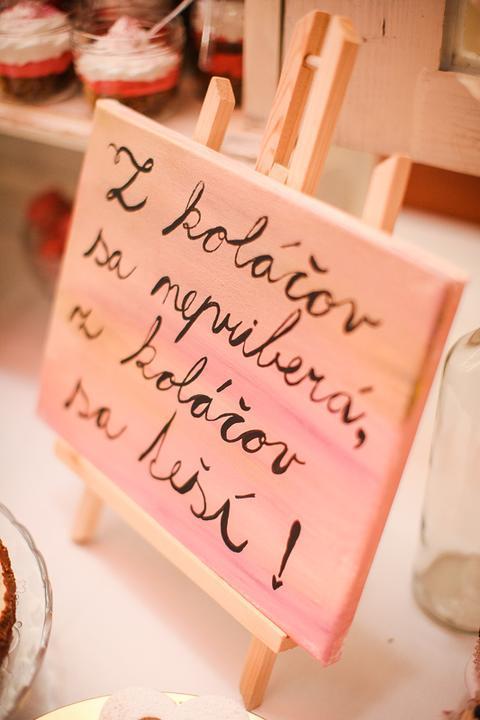 Z koláčov
sa nepriberá,
z koláčov
sa teší!